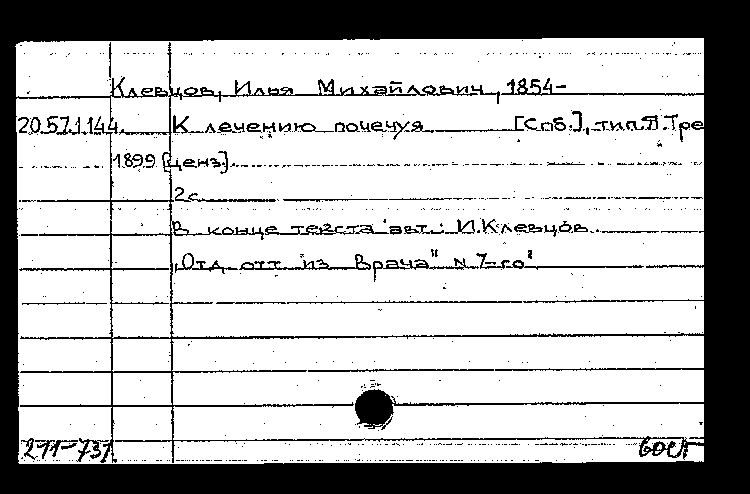 Клевцов, Илья Михайлович, 1854-
20.57.1.144. К лечению почечуя [Спб.], тип. П. Тре
1899 [ценз].
2 с.
В конце текста авт.: И. Клевцов.
„Отд. отт. из „Врача" N 7-го"
211-731